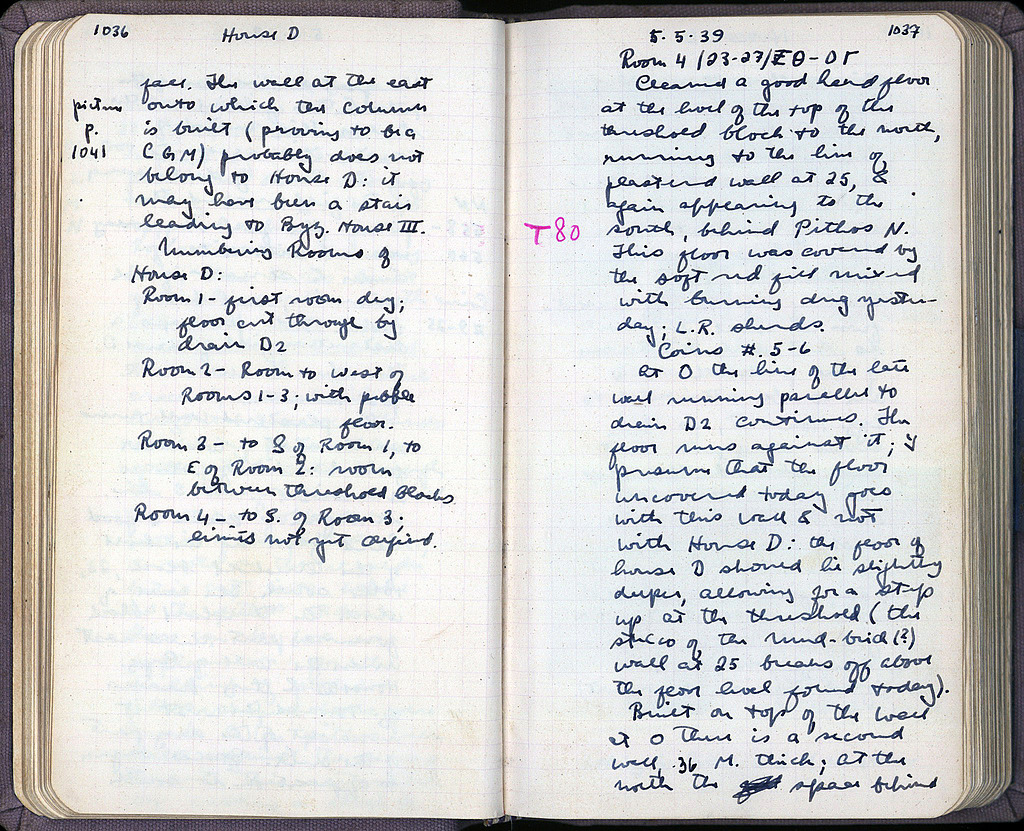 1036
House D
face. The wall at the east
onto which the column
is built (proving to be a
picture
p.
1041
probably does not
belong to House D: it
may have been a stair
leading to Byz. House III.
Numbering Rooms of
House D:
Room 1 - first room dug;
floor cut through by
drain D2
Room 2 - Room to west of
Rooms 1-3; with pebble
floor.
Room 3 - to S of Room 1, to
E of Room 2: room
between threshold blocks
Room 4 - to S. of Room 3;
limits not yet defined.
5.5.39
1037
Room 4 /23-27/
Cleaned a good hard floor
at the level of the top of the
threshold block to the north,
running to the line of
plastered wall at 25, &
again appearing to the
T 80
south, behind Pithos N.
This floor was covered by
the soft red fill mixed
with burning dug yester-
day; L.R. sherds.
Coins #. 5-6
At O the line of the late
wall running parallel to
drain D2 continues. The
floor runs against it; I
presume that the floor
uncovered today goes
with this wall & not
with House D: the floor of
house D should lie slightly
deeper, allowing for a step
up at the threshold (the
stucco of the mud-brick (?)
wall at 25 breaks off above
the floor level found today).
Built on top of the wall
at O there is a second
wall, .36 M. thick; at the
north the space behind